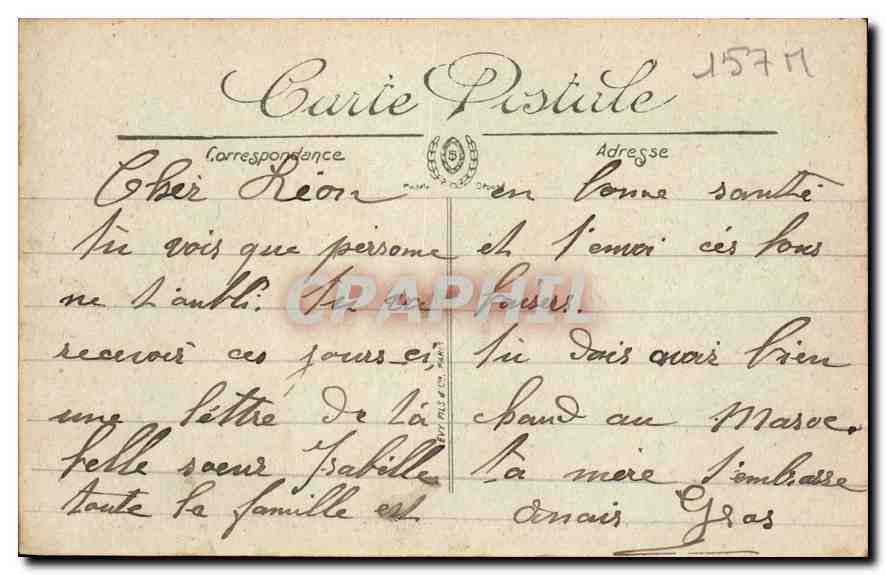 157 M
Carte Postale
Correspondance
Adresse
Cher Léon
tu vois que persone
ne t'aubli. tu va
recevoir ces jours ci,
une léttre de tà
belle soeur Isabelle
toute la famille est
en bonne santé
et t'envoi cés bons
baisers.
tu dois avoir bien
chaud au Maroc.
ta mère t'embrasse
Anais Gras
LEVY FILS & Cie, PARIS
CPAPHIL